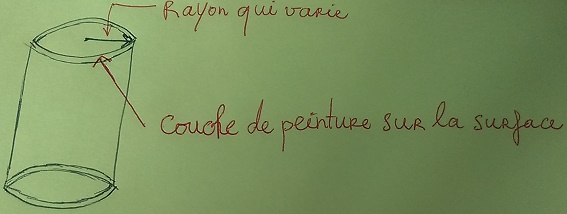 Rayon qui varie
Couche de peinture sur la surface